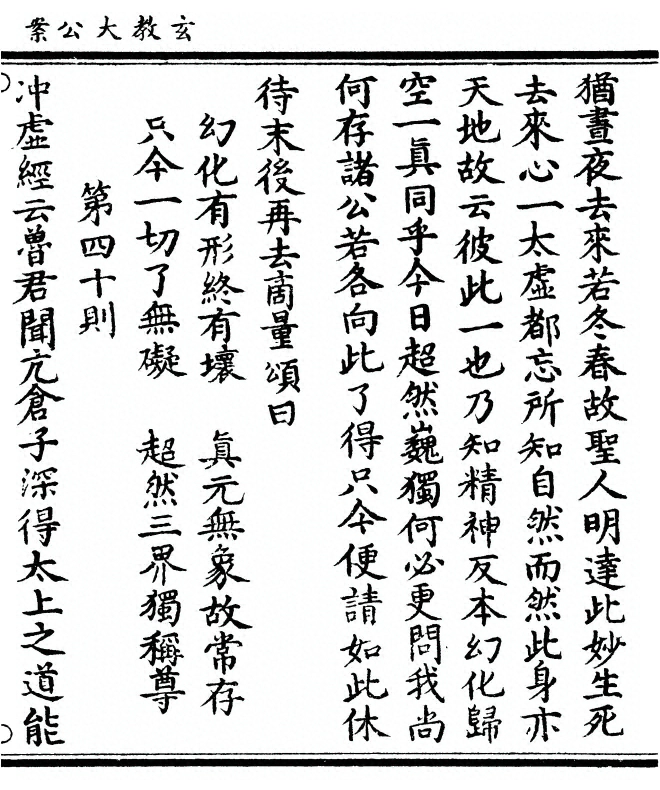 玄教大公案
猶晝夜去來若冬春故聖人明達此妙生死
去來心一太虛都忘所知自然而然此身亦
天地故云彼此一也乃知精神反本幻化歸
空一眞同乎今日超然巍獨何必更問我尚
何存諸公若各向此了得只今便請如此休
待末後再去商量頌曰
幻化有形終有壞 眞元無象故常存
只今一切了無礙 超然三界獨稱尊
第四十則
冲虛經云魯君聞亢倉子深得太上之道能